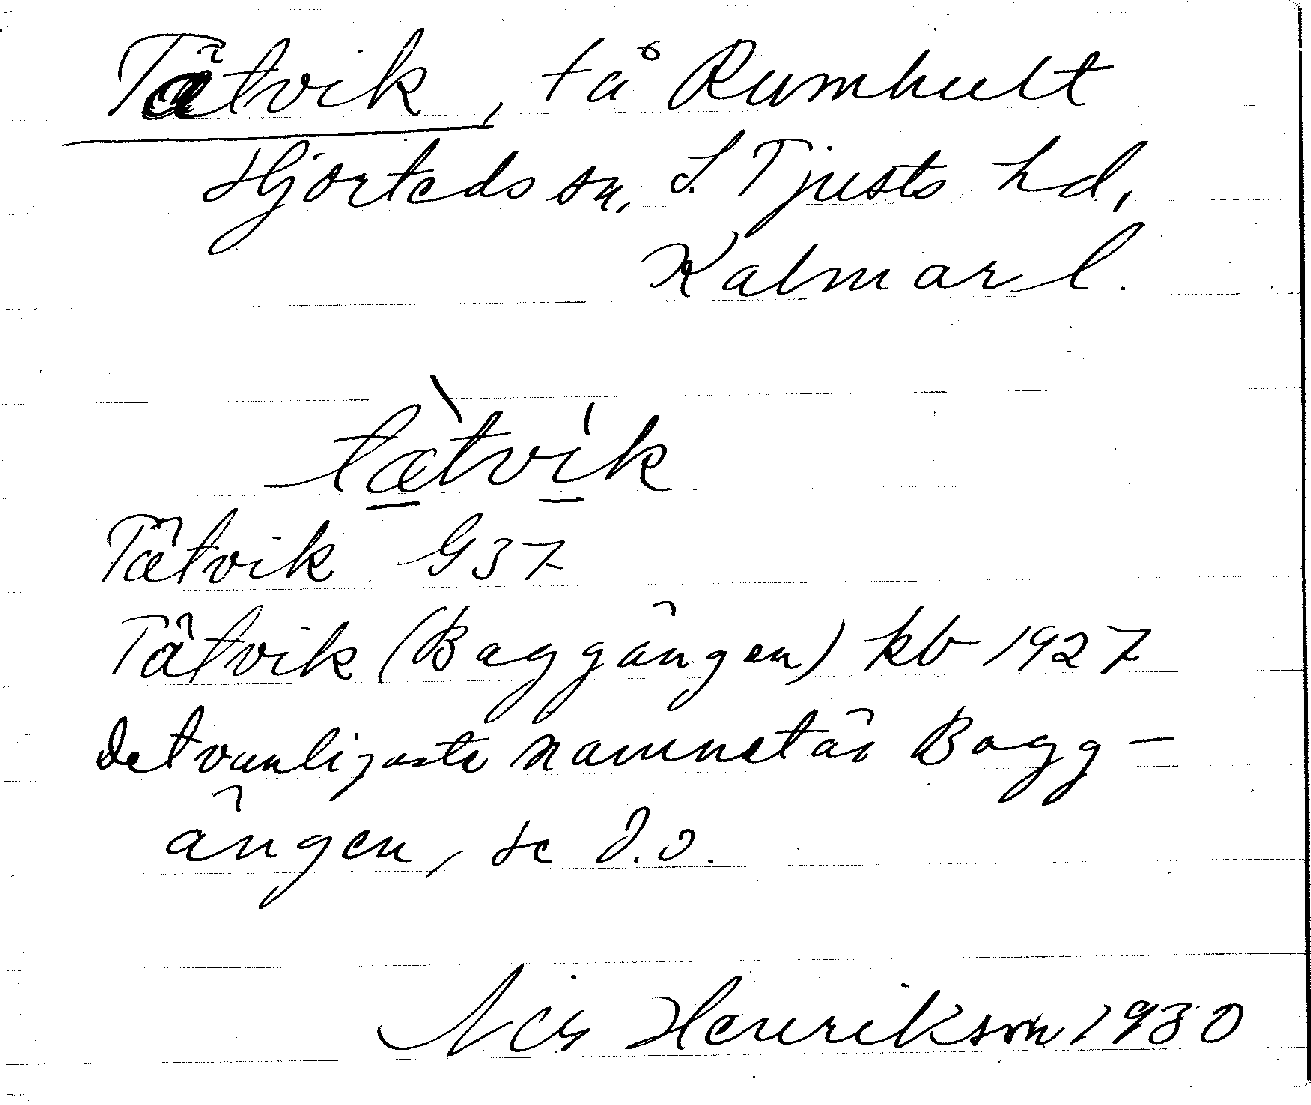 Tätvik, tå Rumhult
Hjorteds sn, S. Tjusts hd,
Kalmar l.
tæ̀tvík
Tätvik G37
Tätvik (Baggängen) kb 1927
Det vanligaste namnet är Bagg-
ängen, se d.o.
Nils Henrikson 1930